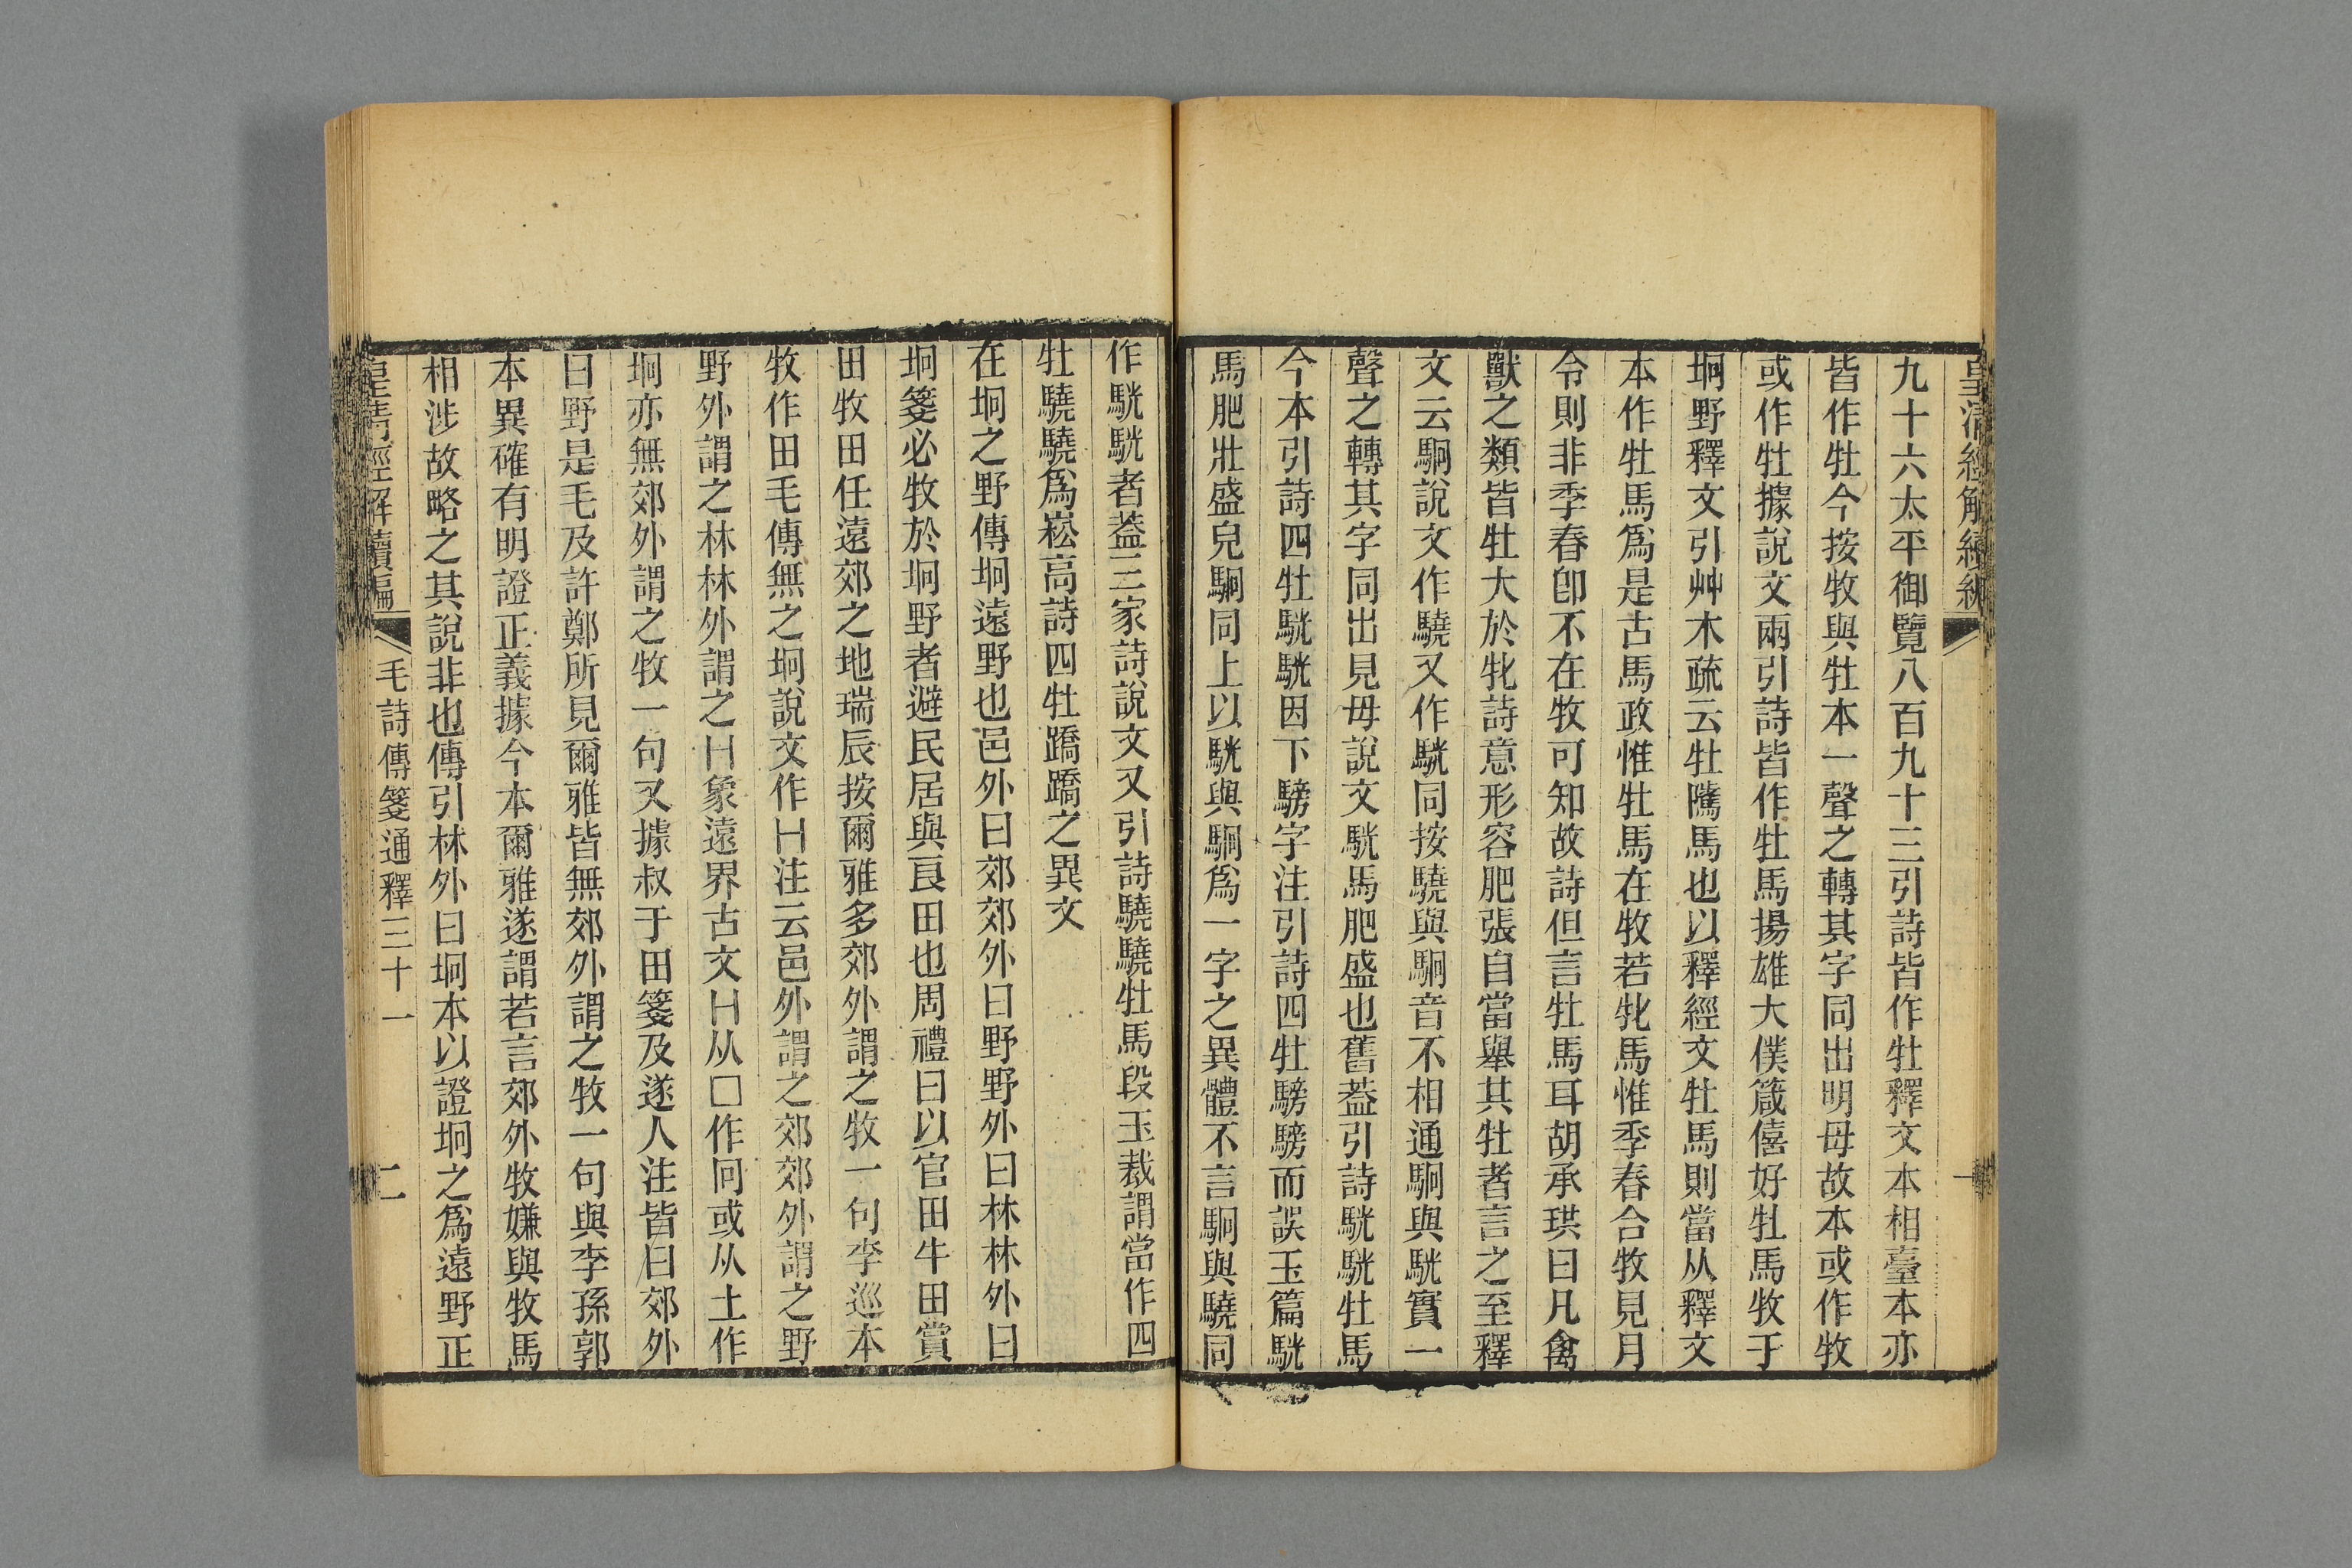 皇清經解續編
一
九十六太平御覽八百九十三引詩皆作牡釋文本相臺本亦
皆作牡今按牧與牡本一聲之轉其字同出明母故本或作牧
或作牡據說文兩引詩皆作牡馬揚雄大僕箴僖好牡馬牧于
坰野釋文引艸木疏云牡騭馬也以釋經文牡馬則當从釋文
本作牡馬爲是古馬政惟牡馬在牧若牝馬惟季春合牧見月
令則非季春卽不在牧可知故詩但言牡馬耳胡承珙曰凡禽
獸之類皆牡大於牝詩意形容肥張自當舉其牡者言之至釋
文云駉說文作驍又作駫同按驍與駉音不相通駉與駫實一
聲之轉其字同出見母說文駫馬肥盛也舊蓋引詩駫駫牡馬
今本引詩四牡駫駫因下騯字注引詩四牡騯騯而誤玉篇駫
馬肥壯盛皃駉同上以駫與駉爲一字之異體不言駉與驍同
作駫駫者蓋三家詩說文又引詩驍驍牡馬段玉裁謂當作四
牡驍驍爲崧高詩四牡蹻蹻之異文
在坰之野傳坰遠野也邑外曰郊郊外曰野野外曰林林外曰
坰箋必牧於坰野者避民居與良田也周禮曰以官田牛田賞
田牧田任遠郊之地瑞辰按爾雅多郊外謂之牧一句李巡本
牧作田毛傳無之坰說文作冂注云邑外謂之郊郊外謂之野
野外謂之林林外謂之冂象遠界古文冂从囗作冋或从土作
坰亦無郊外謂之牧一句又據叔于田箋及遂人注皆曰郊外
曰野是毛及許鄭所見爾雅皆無郊外謂之牧一句與李孫郭
本異確有明證正義據今本爾雅遂謂若言郊外牧嫌與牧馬
相涉故略之其說非也傳引林外曰坰本以證坰之爲遠野正
皇清經解續編
毛詩傳箋通釋三十一
二